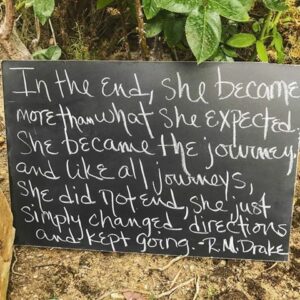 In the end, she became
more than what she expected.
She became the journey,
and like all journeys,
she did not end, she just
simply changed directions
and kept going. -R.M. Drake